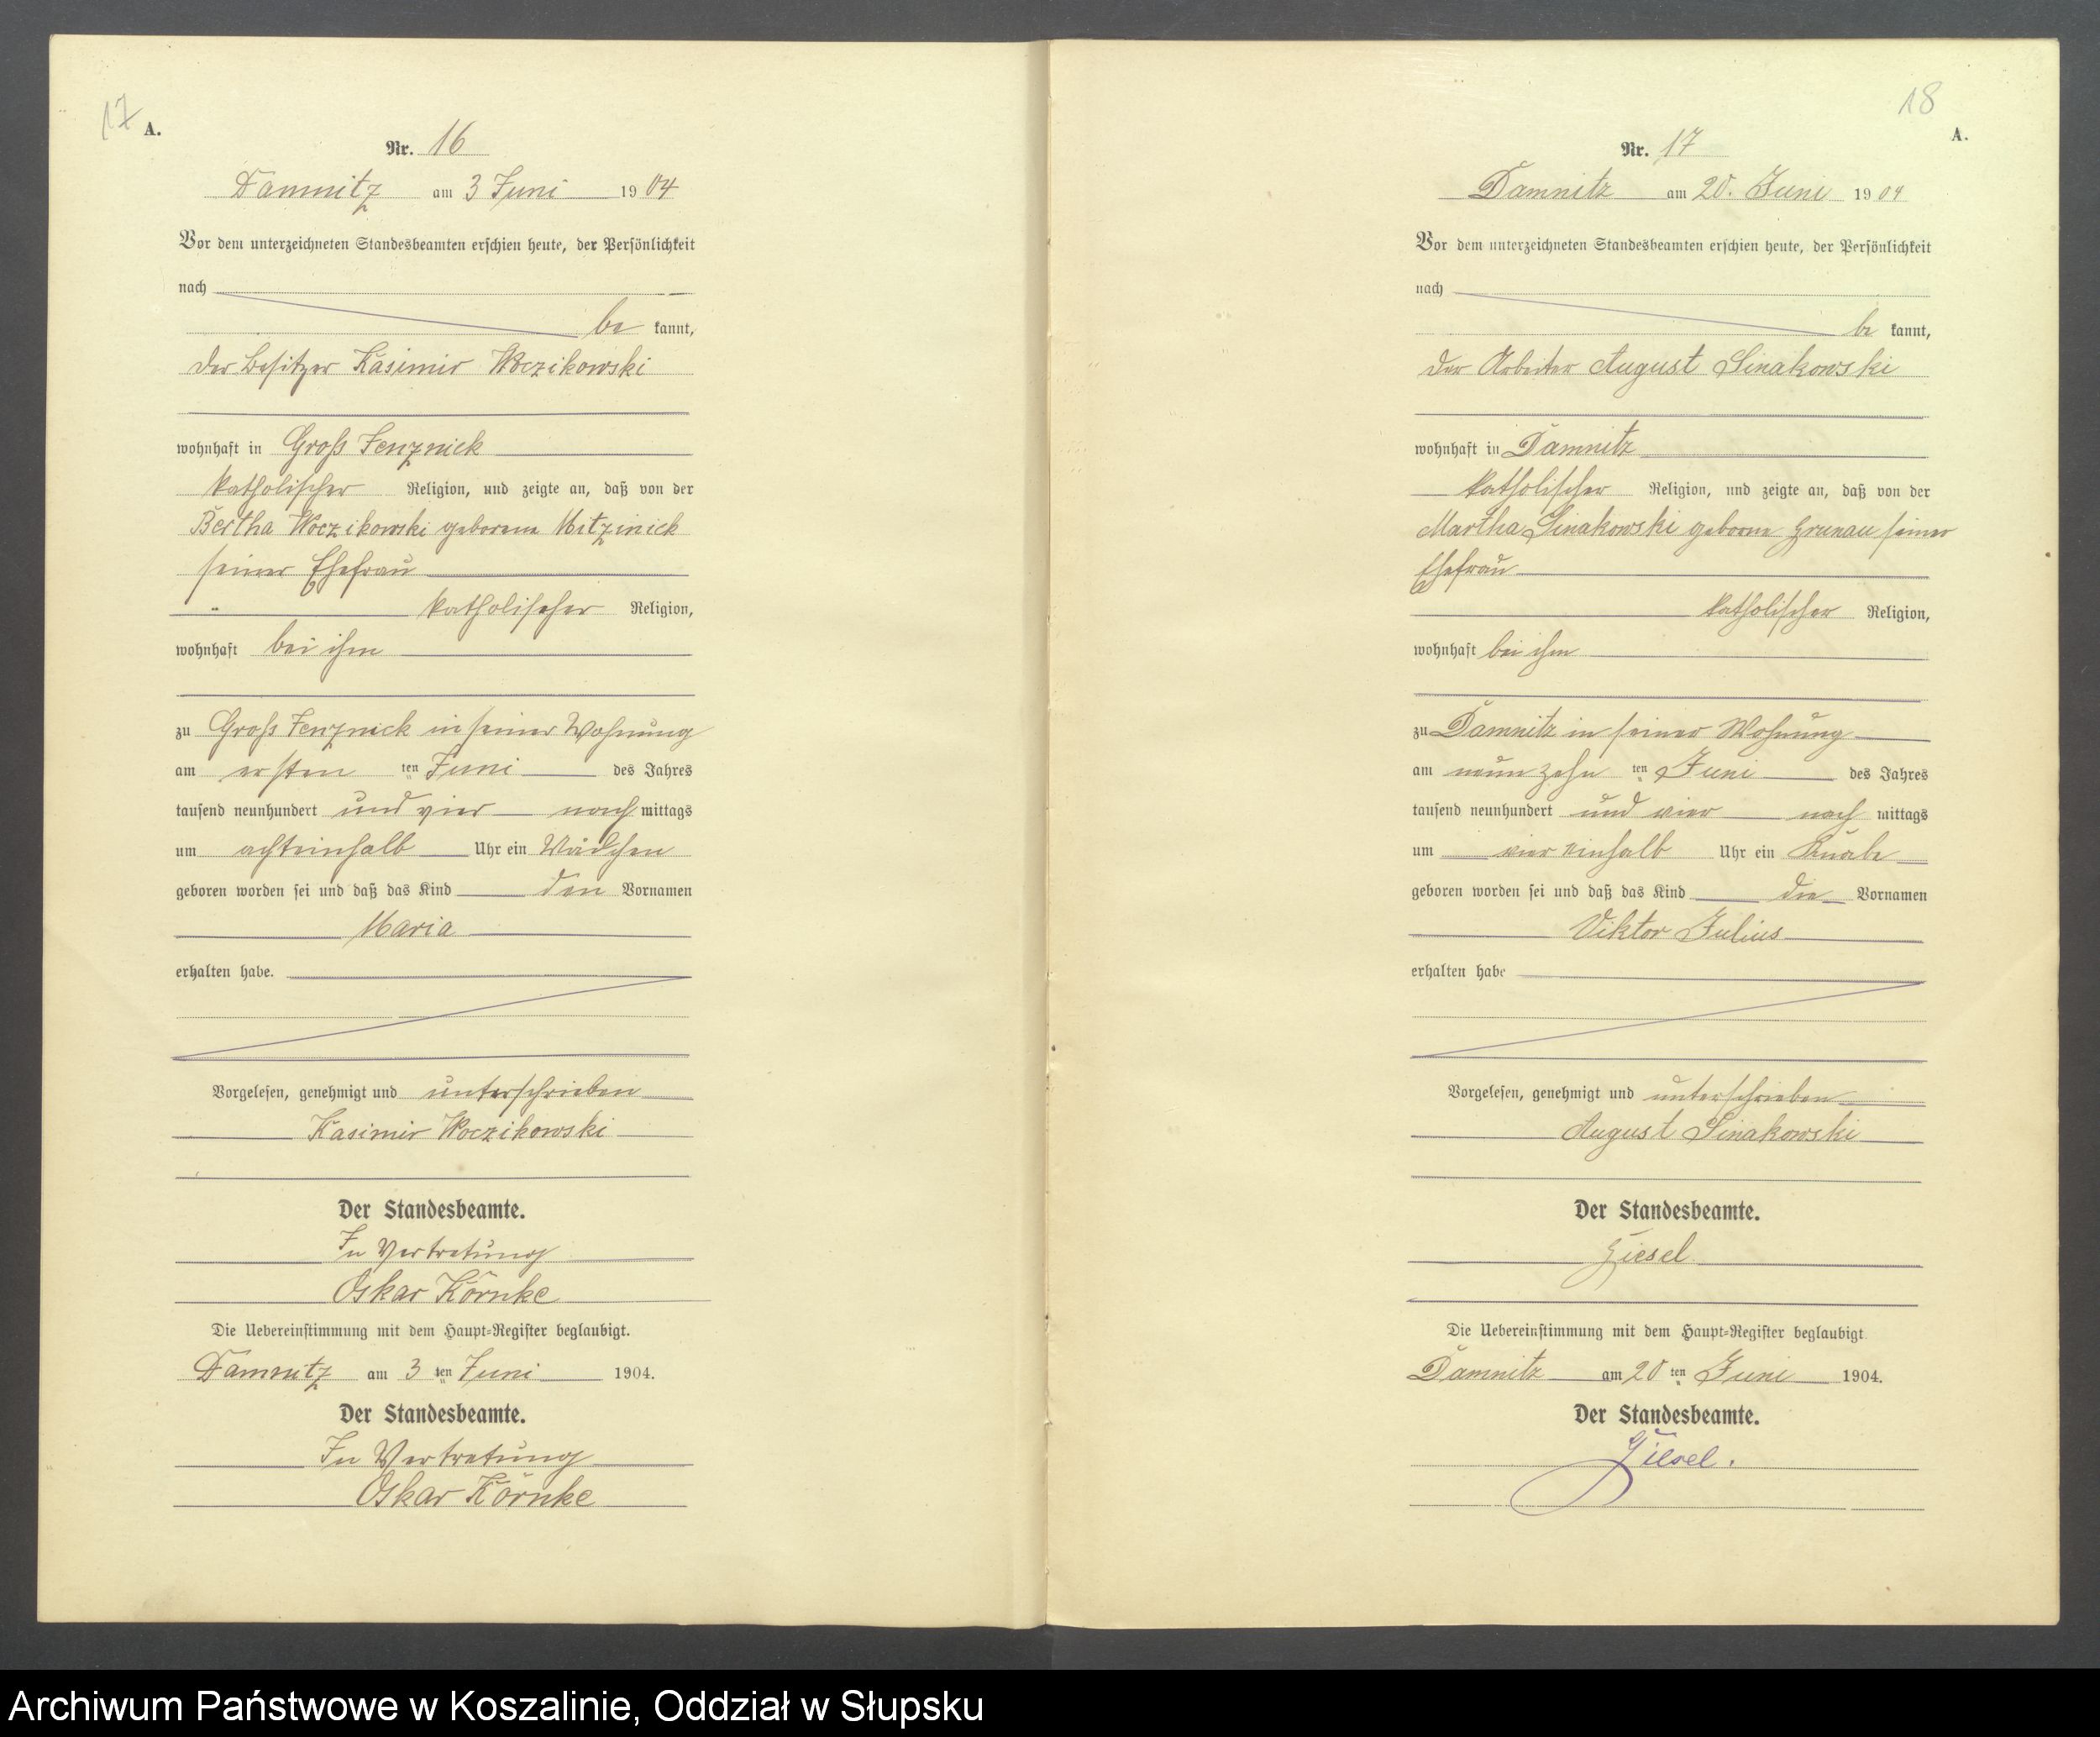 17
A.
Nr. 16
Damnitz am 3 Juni 1904
Vor dem unterzeichneten Standesbeamten erschien heute, der Persönlichkeit
nach
be kannt,
der Besitzer Kasimir Woczikowski
wohnhaft in Groß Jenznick
katholischer Religion, und zeigte an, daß von der
Bertha Woczikowski geborene
seiner Ehefrau
katholischer Religion,
wohnhaft bei ihm
zu Groß Jenznick in seiner Wohnung
am ersten ten Juni des Jahres
tausend neunhundert und vier nach mittags
um achteinhalb Uhr ein Mädchen
geboren worden sei und daß das Kind den Vornamen
Maria
erhalten habe.
Vorgelesen, genehmigt und unterschrieben
Kasimir Woczikowski
Der Standesbeamte.
In Vertretung
Oskar Körnke
Die Uebereinstimmung mit dem Haupt-Register beglaubigt.
Damnitz am 3 ten Juni 1904.
Der Standesbeamte.
In Vertretung
Oskar Körnke
18
A.
Nr. 17
Damnitz am 20. Juni 1904
Vor dem unterzeichneten Standesbeamten erschien heute, der Persönlichkeit
nach
be kannt,
der Arbeiter August Sinakowski
wohnhaft in Damnitz
katholischer Religion, und zeigte an, daß von der
Martha Sinakowski geborne Grunau seiner
Ehefrau
katholischer Religion,
wohnhaft bei ihm
zu Damnitz in seiner Wohnung
am neunzehn ten Juni des Jahres
tausend neunhundert und vier nach mittags
um vier einhalb Uhr ein Knabe
geboren worden sei und daß das Kind die Vornamen
Viktor Julius
erhalten habe
Vorgelesen, genehmigt und unterschrieben
August Sinakowski
Der Standesbeamte.
Giesel
Die Uebereinstimmung mit dem Haupt-Register beglaubigt
Damnitz am 20 ten Juni 1904.
Der Standesbeamte.
Giesel.
Archiwum Państwowe w Koszalinie, Oddział w Słupsku